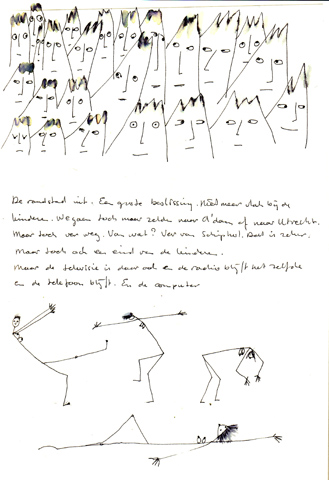 De randstad uit. Een grote beslissing. Niet meer vlak bij de
kinderen. We gaan toch maar zelden naar A'dam of naar Utrecht.
Maar toch ver weg. Van wat? Ver van Schiphol. Dat is zeker.
Maar toch ook een eind van de kinderen.
Maar de televisie is daar ook en de radio blijft het zelfde
en de telefoon blijft. En de computer